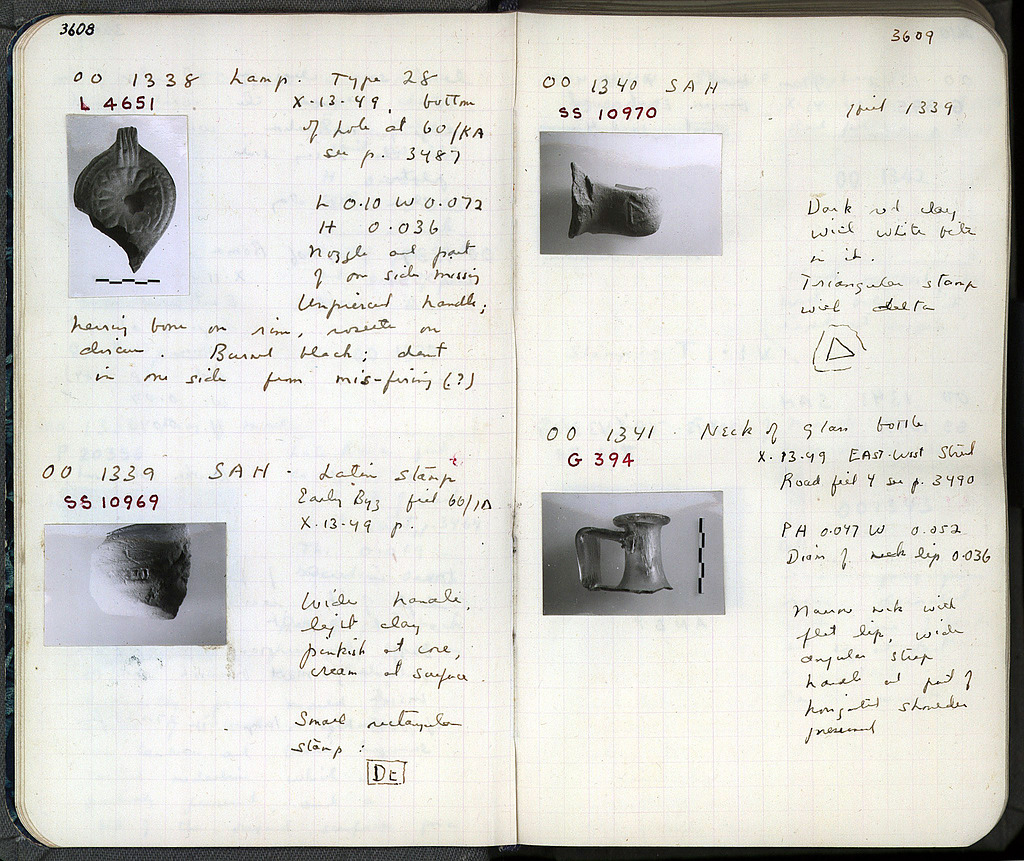 3608
OO 1338 Lamp. Type 28
L 4651
X-13-49, bottom
of hole at 60/KA
see p. 3487
L 0.10 W 0.072
H 0.036
Nozzle and part
of one side missing
Unpierced handle;
herring bone on rim, rosette on
discus. Burnt black; dent
in one side from mis-firing (?)
OO 1339 SAH - Latin stamp
SS 10969
Early Byz fill 60/ΙΔ
X-13-49 p.
Wide handle,
light clay
pinkish at core,
cream at surface.
Small rectangular
stamp:
DE
3609
OO 1340 SAH
SS 10970
1339
Dark red clay
with white bits
in it.
Triangular stamp
with delta
Δ
OO 1341. Neck of glass bottle
G 394
X-13-49 East-West Street
Road fill 4 see p. 3490
PH 0.047 W 0.052
Diam of neck lip 0.036
Narrow neck with
flat lip, wide
angular strap
handle and part of
horizontal shoulder
preserved